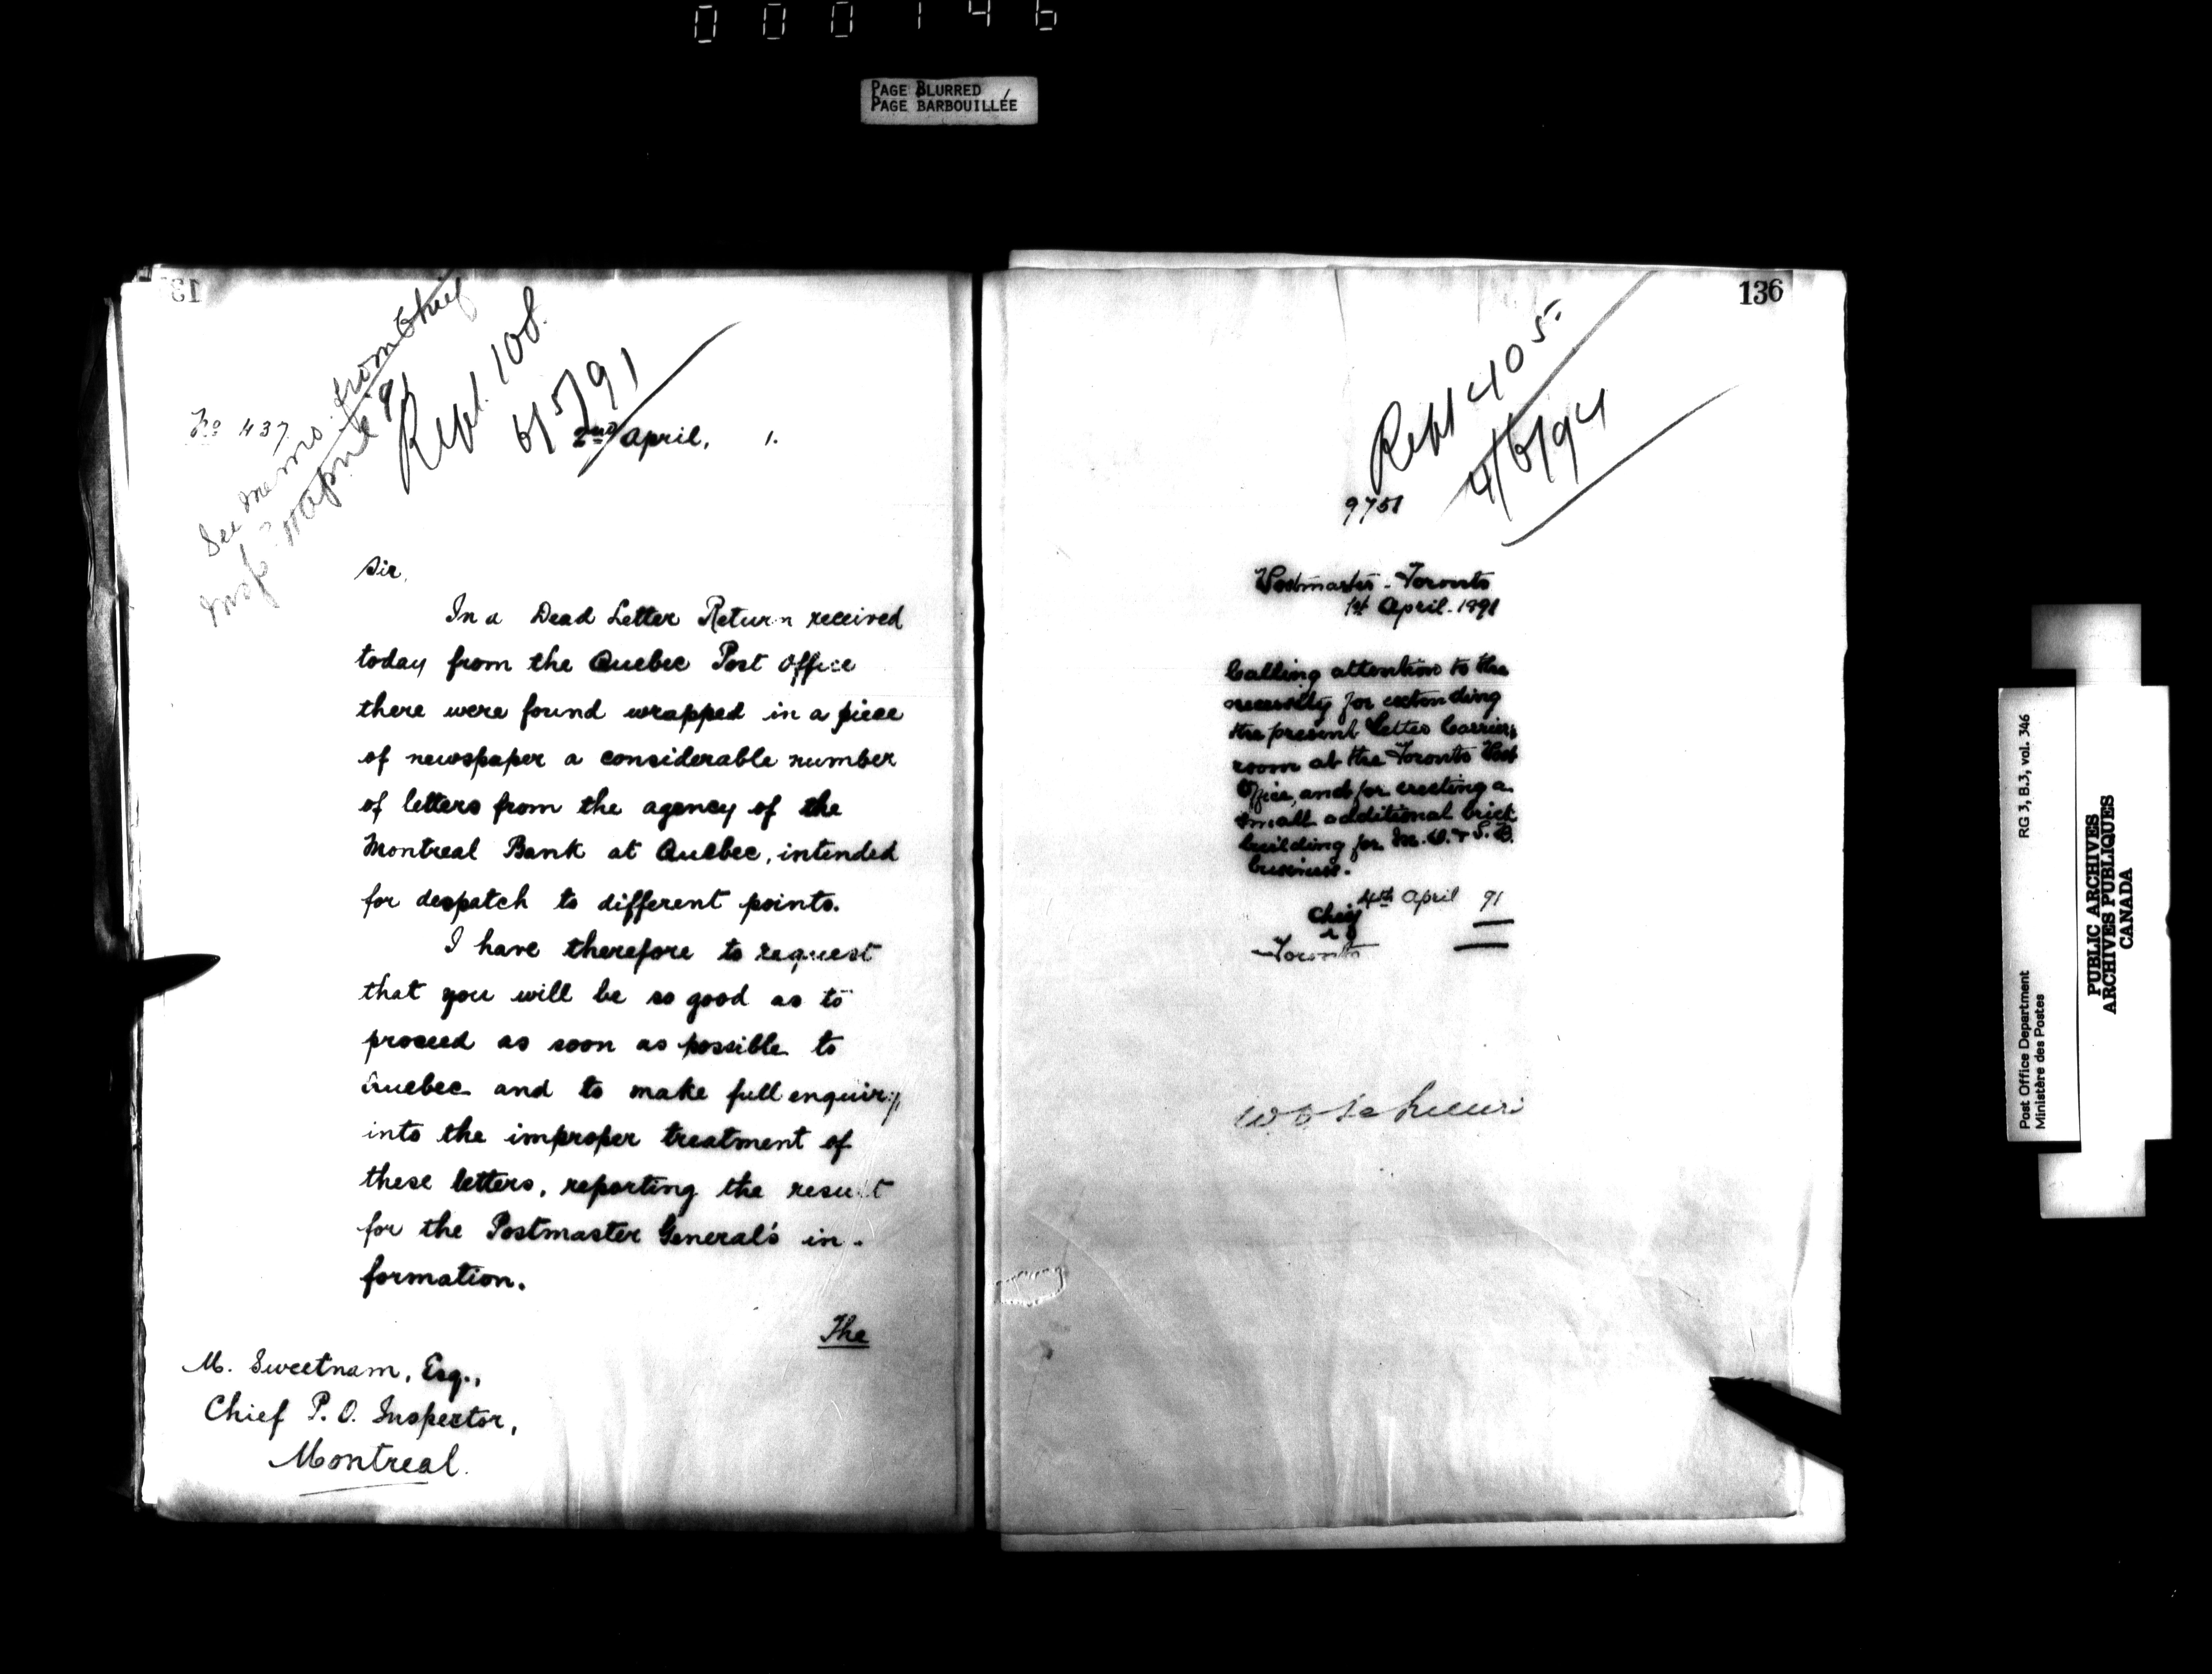 000146
PAGE BLURRED
PAGE BARBOUILLÉE
See memo. from Chief
Repl. 108.
6/5/91
No 437
2nd April, 1.
Sir,
In a Dead Letter Return received
today from the Quebec Post Office
there were found wrapped in a piece
of newspaper a considerable number
of letters from the agency of the
Montreal Bank at Quebec, intended
for despatch to different points.
I have therefore to request
that you will be so good as to
proceed as soon as possible to
Quebec and to make full enquiry
into the improper treatment of
these letters, reporting the result
for the Postmaster General's in-
formation.
The
M. Sweetnam, Esq.,
Chief P. O. Inspector,
Montreal.
136
Repl 405
4/6/94
9751
Postmaster - Toronto
1st April. 1891
Calling attention to the
necessity for extending
the present Letter Carriers
room at the Toronto Post
Office, and for erecting a
small additional brick
building for M. O. & S. B.
business.
4th April 91
Chief
Toronto
Post Office Department
Ministère des Postes
RG 3, B.3, vol. 346
PUBLIC ARCHIVES
ARCHIVES PUBLIQUES
CANADA